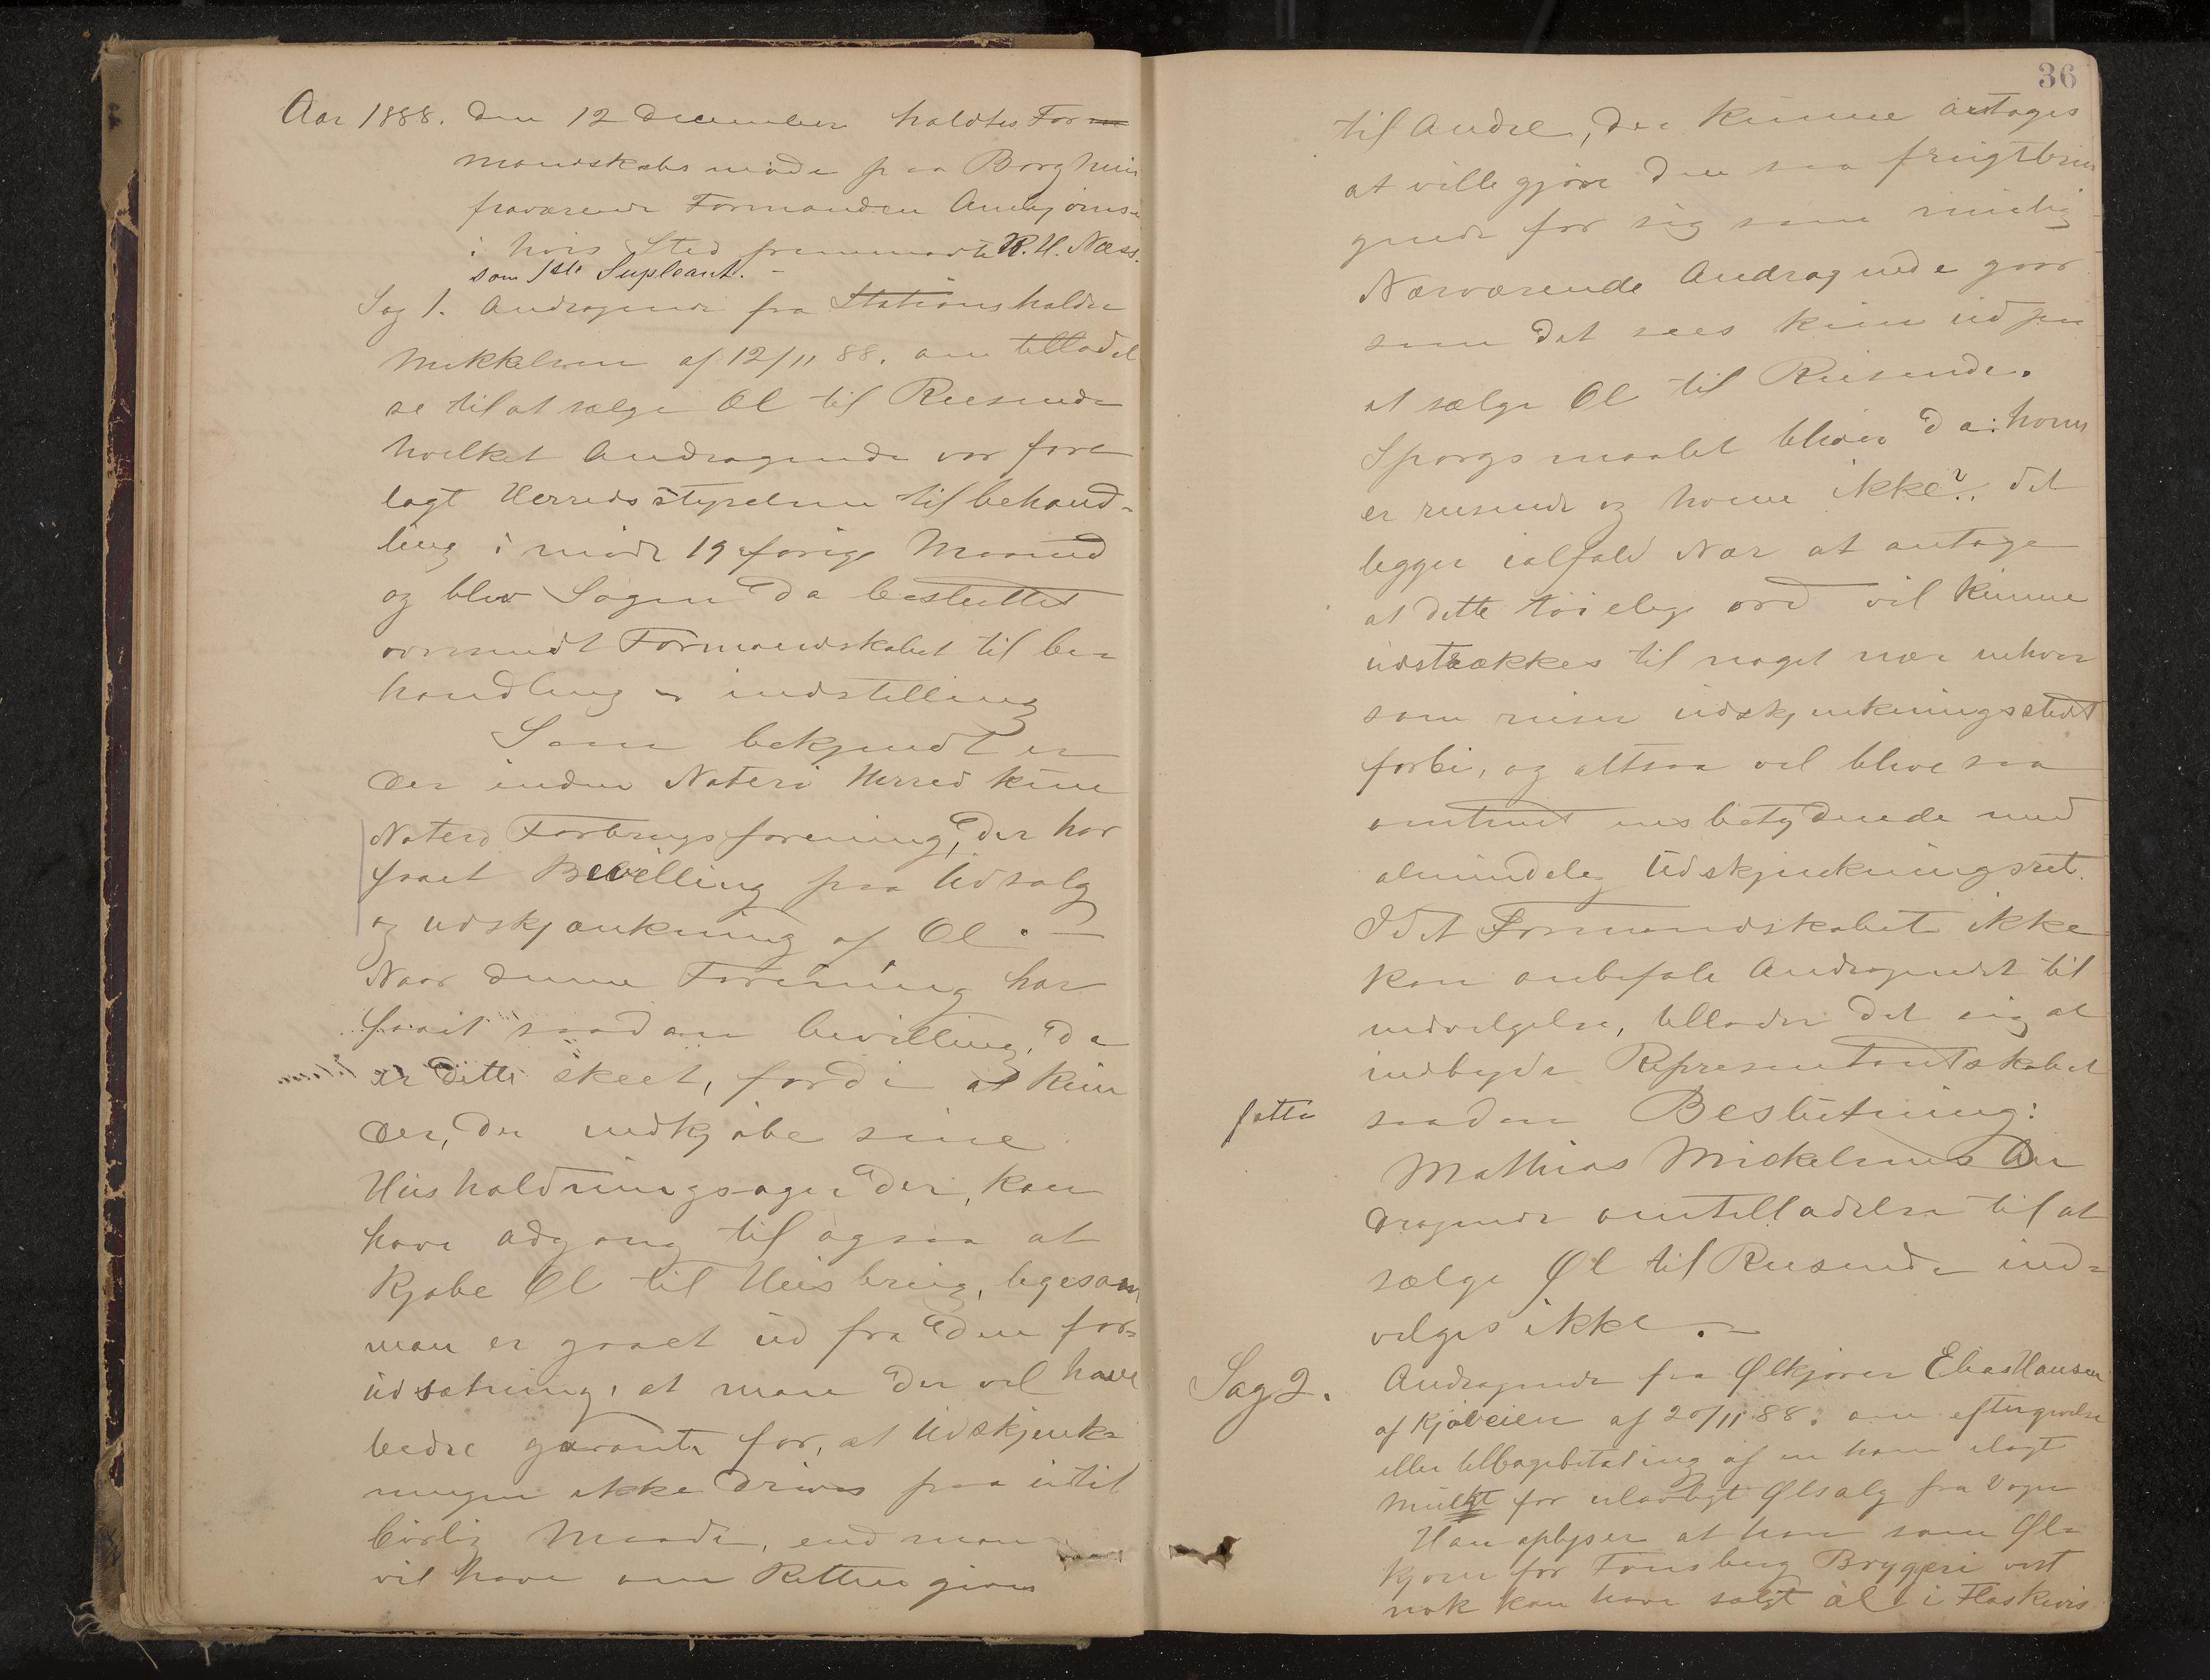 Aar 1888. den 12 December holdtes For
mandskabsmøde paa Borgheim
fraværende Formanden Anebjørns-
i hvis Sted fremmødte R. H. Næss.
som 1ste Supleant. -
Sag 1. Andragende fra Stationsholder
Mikkelsen af 12/11 88. om tilladel
se til at sælge Øl til Reisende
hvilket Andragende var fore
lagt Herredsstyrelsen til behand-
ling i møde 19 forige Maaned
og blev Sagen da besluttet
oversendt Formandskabet til be-
handling og indstilling
Som bekjendt er
der inden Nøterø Herred kun
Nøterø Forbrugsforening, der har
faaet Bevilling paa Udsalg
og udskjænkning af Øl. -
Naar denne Forening har
faaet saadan bevilling, da
er dette skeet, fordi at kun
der, der indkjøbe sine
Husholdningsager der, kan
have adgang til ogsaa at
Kjøbe Øl til Husbrug, ligesom
man er gaaet ud fra den for-
udsætning, at man der vil have
bedre garanti for, at Udskjenk-
ningen ikke drives paa util
børlig Maade, end man
vil have om Retten gives
36
til Andre, der kunne antages
at ville gjøre den saa frugtbrin
gende for sig som mulig
Nærværende Andragende gaar
som det sees kun ud paa
at sælge Øl til Reisende.
Spørgsmaalet bliver da: hvem
er reisende og hvem ikke?. det
ligger ialfald Nær at antage
at dette tøielig ord vil kunne
udstrækkes til noget nær enhver
som reiser udskjenkningsstedet
forbi, og altsaa vil blive saa
omtrent ensbetydende med
almindelig Udskjenkningsret.
Idet Formandskabet ikke
kan anbefale Andragendet til
indvilgelse, tillader det sig at
indbyde Representantskabet
fatte saadan Beslutning:
Mathias Mickelsens An
dragende om tilladelse til at
sælge Øl til Reisende ind-
vilges ikke. -
Sag 2. Andragende fra Ølkjører Elias Hansen
af Kjøbeien af 20/11 88. om eftergivelse
eller tilbagebetaling af en ham ilagt
Mulkt for ulovligt Ølsalg fra Vogn
Han oplyser at han som Øl-
kjører for Tønsberg Bryggeri vist
nok kan have solgt øl i Flaskevis